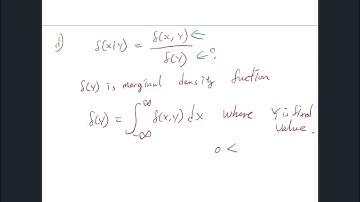 d) f(x|y) = f(x,y) ← / f(y) ← ?
f(y) is marginal density fuction
f(y) = ∫_{-∞}^{∞} f(x,y) dx where Y is fixed
value.
0 <